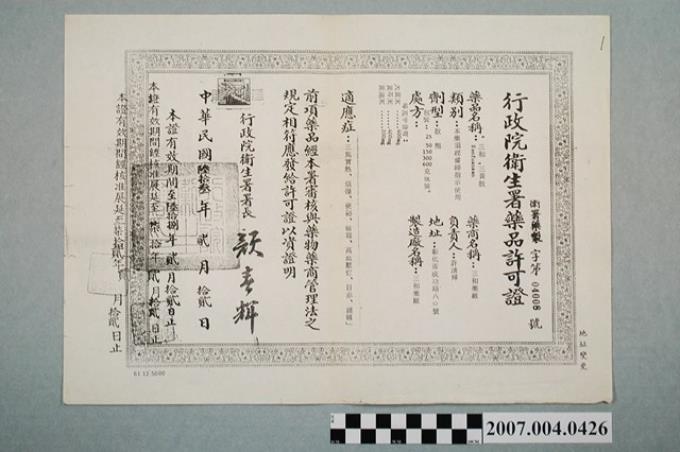 行政院衛生署藥品許可證
衛署藥製字第04008號
藥品名稱：三和．三黃散
類別：本藥須經醫師指示使用
劑型：散劑
包裝：25 50 150 300 600 克瓶裝。
處方：
藥商名稱：三和藥廠
負責人：許
地址：彰化市成功路八〇號
製造廠名稱：三和藥廠
適應症：
前項藥品經本署審核與藥物藥商管理法之
規定相符應發給許可證以資證明
行政院衛生署署長 顏春輝
中華民國陸拾叁年貳月拾貳日
本證有效期間至陸拾捌年貳月拾貳日止
本證有效期間經核准展延至柒拾年貳月拾貳日止
本證有效期間經核准展延至柒拾貳年貳月拾貳日止
地址變更
1
61 12 5000
2007.004.0426